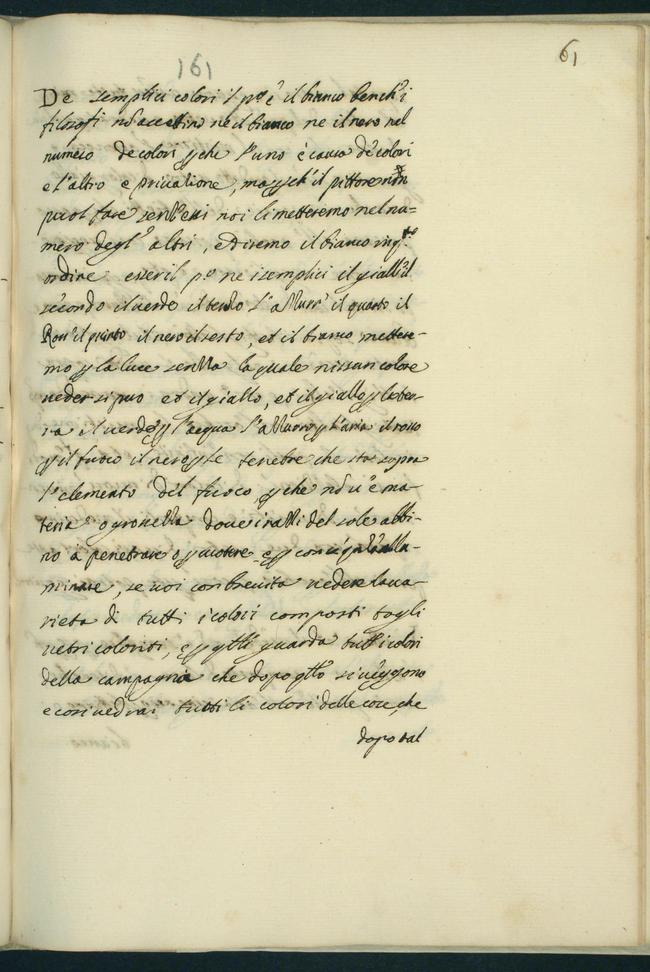 161
61
De semplici colori il p.º è il bianco benche i
filosofi nõ accettino ne il bianco ne il nero nel
numero de colori ꝑche l'uno è causa de colori
e l'altro e privatione, ma ꝑch' il pittore non
puol fare senz'essi noi li metteremo nel nu-
mero degl' altri, e diremo il bianco in q.to
ordine esser il p.º ne i semplici il giall' il
secondo il verde il terzo l'azzurr' il quarto il
Ross' il quinto il nero il sesto, et il bianco mettere-
mo ꝑ la luce senza la quale nissun colore
veder si puo et il giallo, et il giallo ꝑ la ter-
ra il verde ꝑ l'acqua l'azzurro ꝑ l'aria il rosso
ꝑ il fuoco il nero ꝑ le tenebre che stã sopra
l'elemento del fuoco, ꝑche nõ v'è ma-
teria o grossezza dove i razzi del sole abbi-
no à penetrare o ꝑcotere e ꝑ consiq.ª allu-
minare, se voi con brevita vedere la va-
rieta di tutti i colori composti togli
vetri coloriti, e ꝑ q̃lli guarda tutt' i colori
della campagna che dopo q̃llo si veggono
e cosi vedrai tutti li colori delle cose, che
dopo tal